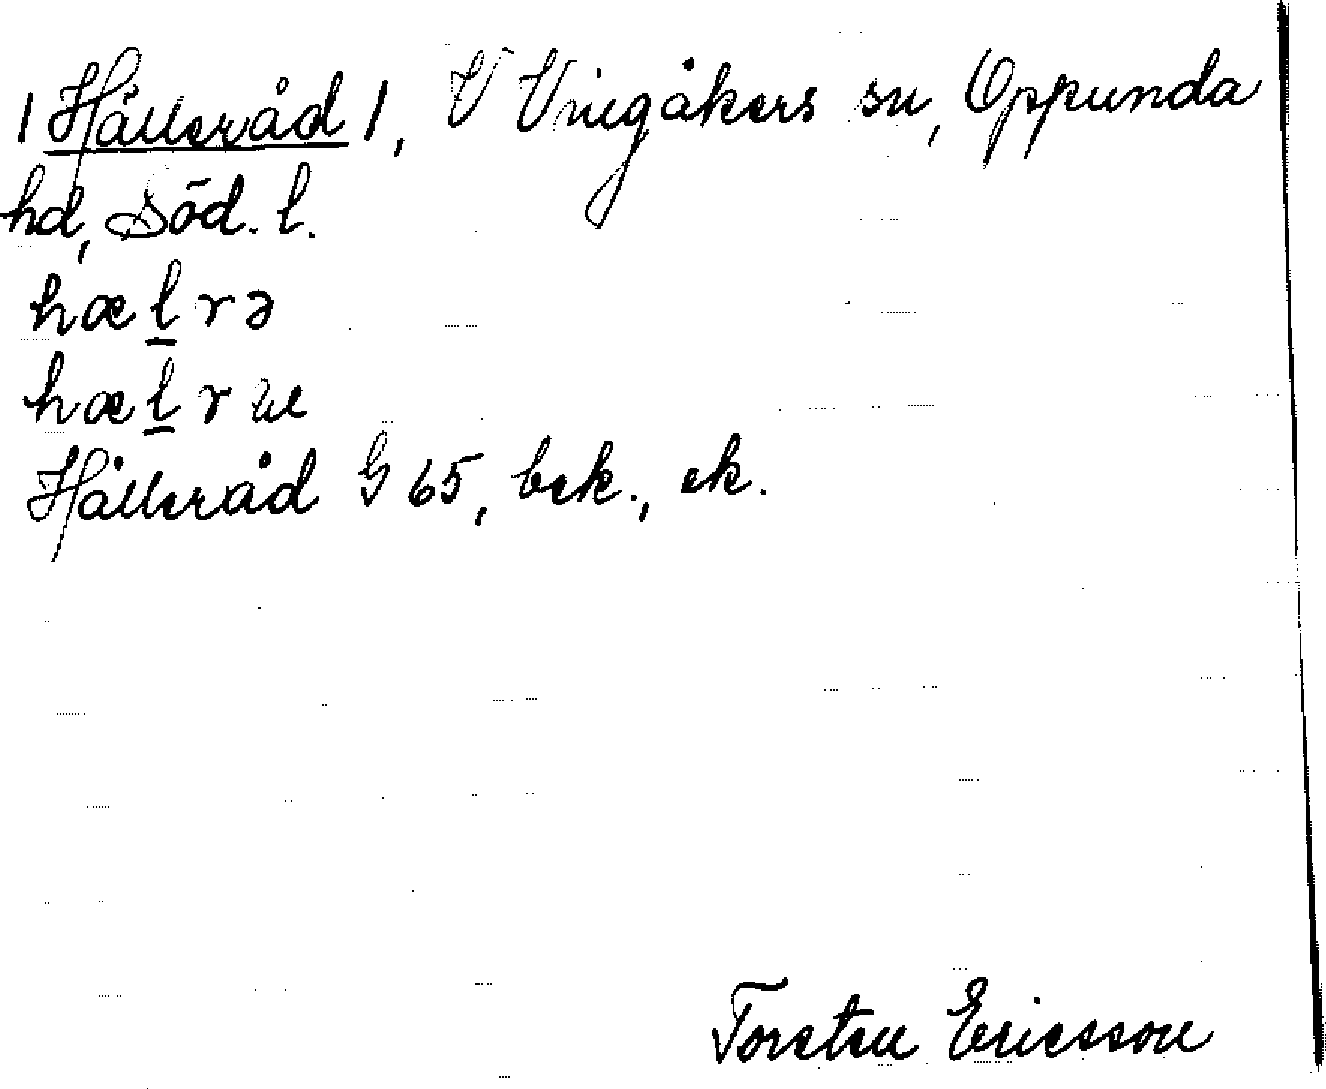 / Hålleråd /, V Vingåkers sn, Oppunda
hd, Söd. l.
hælrə
hælrɯ
Hålleråd G 65, bek., ek.
Torsten Ericsson